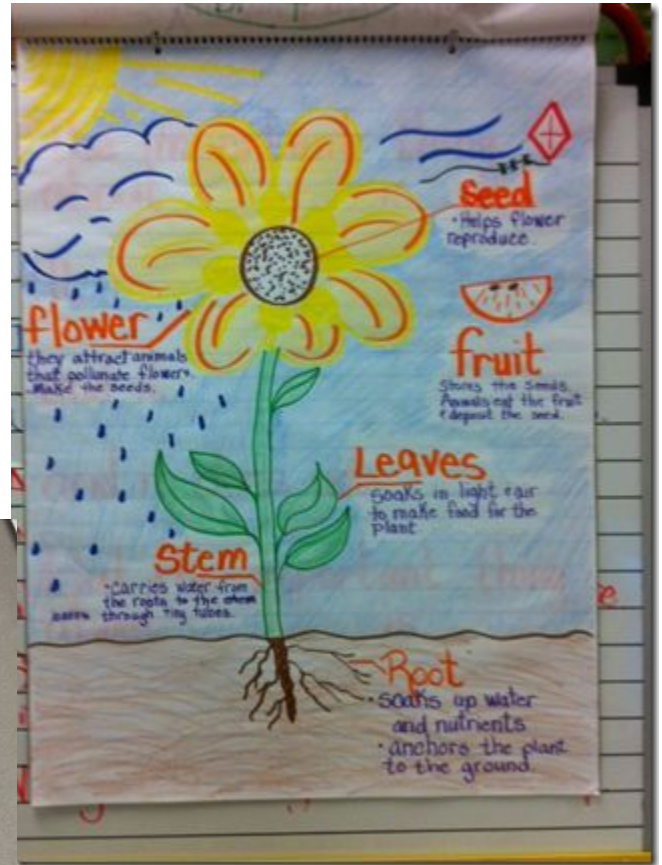 Seed
• Helps flower
reproduce.
flower
they attract animals
that pollunate flowers.
Make the seeds.
fruit
Stores the seeds.
Animals eat the fruit
& deposit the seed.
Leaves
soaks in light & air
to make food for the
plant
Stem
• carries water from
the roots to the
through tiny tubes.
Root
• soaks up water
and nutrients
• anchors the plant
to the ground.